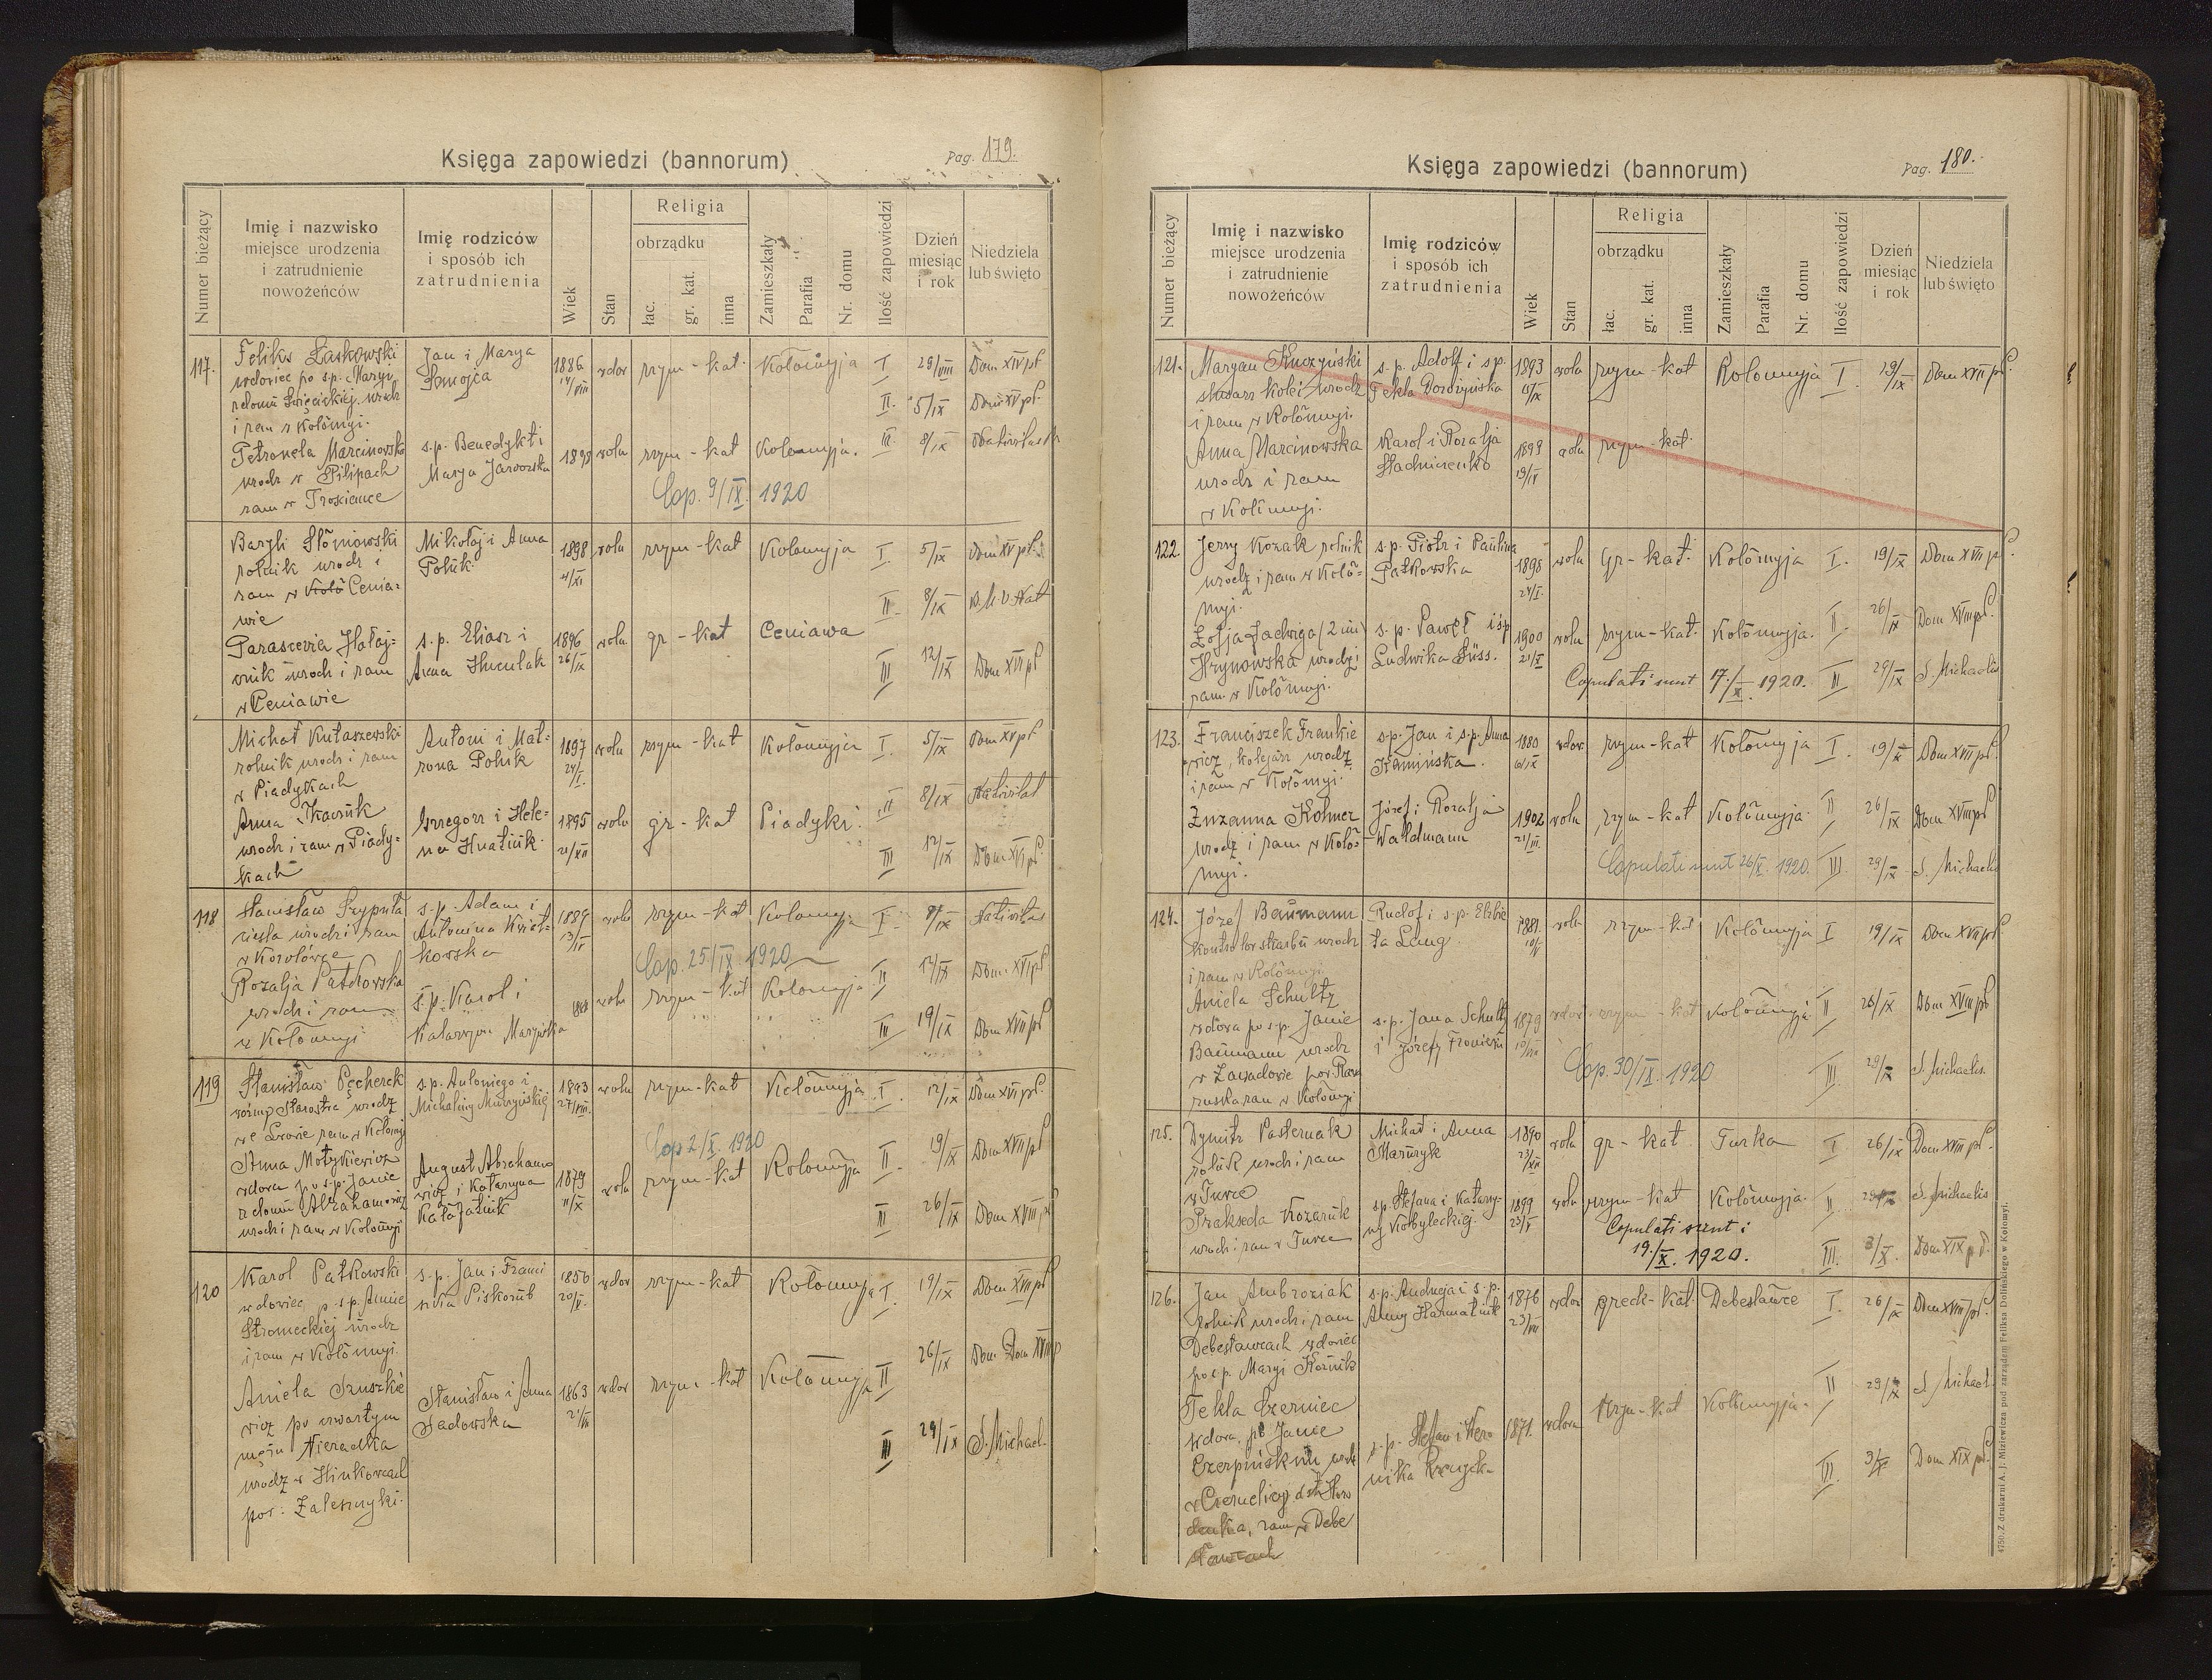 Księga zapowiedzi (bannorum)
Pag. 179.
Numer bieżący
Imię i nazwisko
miejsce urodzenia
i zatrudnienie
nowożeńców
Imię rodziców
i sposób ich
zatrudnienia
Wiek
Stan
Religia
obrządku
łac.
gr. kat.
inna
Zamieszkały
Parafia
Nr. domu
Ilość zapowiedzi
Dzień
miesiąc
i rok
Niedziela
lub święto
117.
Feliks Laskowski
wdowiec po s.p. Maryi
i zam w Kołomyi.
Jan i Marya
1886
14/VIII
wdow
rzym-kat.
Kołomyja
I
29/VIII
Dom XIV pt
II.
5/IX
Dom XV pt.
Petronela Marcinowska
urodz w Pilipach
zam w
s.p. Benedykt i
Marya Jaworska
wolu
rzym-kat
Kolomyja.
III
8/IX
Cop. 9/IX. 1920
Bazyli Słoniowski
rolnik urodz i
zam w Cenia-
wie
Mikołaj i Anna
Poluk
1898
wolu
rzym-kat
Kolomyja
I
5/IX
Dom XV pt.
II
8/IX
B.M.V. Nat
Parascevia Hałaj-
urodz i zam
w Ceniawie
s.p. Eliasz i
Anna Huculak
1896
26/IX
wolu
gr-kat
Ceniawa
III
12/IX
Dom XVI pt
Michał Kułaszewski
rolnik urodz i zam
w Piadykach
Antoni i Mat-
rona Poluk
1897
24/I.
wolu
rzym-kat
Kołomyja
I.
5/IX
Dom XV pt
II
8/IX
Nativitat
Anna Tkaczuk
urodz i zam w Piady-
kach
Grzegorz i Hele-
na Hnatiuk
1895
21/XII
wolu
gr-kat
Piadyki.
III
12/IX
Dom XVI pt.
118
Stanisław Szypuła
ciesla urodz i zam
w Korolówce
s.p. Adam i
Antonina Kwiat-
kowska
1889
13/IV
wolu
rzym-kat
Kolomyja
I
8/IX
Nativitas
Cop. 25/IX 1920
II
12/IX
Dom. XVI pt
Rozalja Patkowska
urodz i zam
w Kołomyi
s.p. Karol i
Katarzyna
wolu
rzym-kat
Kolomyja
III
19/IX
Dom XVII pt
119
Stanisław Pęcherek
woźny Starostw urodz
we Lwowie zam w Kołomyi
s.p. Antoniego i
Michaliny Muszyńskiej
1893
27/VIII.
wolu
rzym-kat
Kołomyja
I.
12/IX
Dom XVI pt.
Cop 2/X. 1920
Anna Motykiewicz
wdowa po s.p. Janie
z domu Abrahamowicz
urodz i zam w Kołomyi
August Abrahamo
wicz i Katarzyna
1879
11/X
rzym-kat
Kolomyja
II
19/IX
Dom XVII pt
III
26/IX
Dom XVIII pt
120
Karol Patkowski
wdowiec p. s.p. Annie
Stromeckiej urodz
i zam w Kołomyi.
s.p. Jan i Franci
szka Piskozub
1850
20/V.
wdow
rzym-kat
Kołomyja
I.
19/IX
Dom XVII pt
26/IX
Dom Dom XVIII p
Aniela Szuszkie
wicz po czwartym
mężu Nieradka
urodz w Hinkowcach
pow: Zaleszczyki.
Stanisław i Anna
Sadowska
1863
wdow
rzym-kat
Kołomyja
II
III
29/IX
S. Michael.
Księga zapowiedzi (bannorum)
Pag. 180.
Numer bieżący
Imię i nazwisko
miejsce urodzenia
i zatrudnienie
nowożeńców
Imię rodziców
i sposób ich
zatrudnienia
Wiek
Stan
Religia
obrządku
łac.
gr. kat.
inna
Zamieszkały
Parafia
Nr. domu
Ilość zapowiedzi
Dzień
miesiąc
i rok
Niedziela
lub święto
121.
Maryan Kuczyński
ślusarz kolei urodz
i zam w Kołomyi.
s.p. Adolf i s.p.
Tekla Dorożyńska
1893
wolu
rzym-kat
Kolomyja
I.
19/IX
Dom XVII pt.
Anna Marcinowska
urodz i zam
w Kołomyi.
Karol i Rozalja
1899
19/IV
wolu
rzym-kat
122.
Jerzy Kozak rolnik
urodz i zam w Koło-
myi.
s.p. Piotr i Paulina
Patkowska
1898
24/I.
wolu
Gr-kat.
Kołomyja
I.
19/IX
Dom XVII pt.
Zofja Jadwiga (2 im)
Hrynowska urodz i
zam. w Kołomyi.
s.p. Paweł i s.p.
Ludwika Süss.
1900
21/X
wolu
rzym-kat.
Kołomyja.
II.
26/IX
Dom XVIII pt.
Copulati sunt 17./X. 1920.
III
29/IX
S. Michaelis
123.
Franciszek Frankie
wicz, kolejarz urodz
i zam w Kołomyi.
s.p. Jan i s.p. Anna
Kamińska.
1880
wdow
rzym-kat
Kołomyja
I.
19/IX
Dom XVII pt.
Zuzanna Kohner
urodz i zam w Koło-
myi.
Józef i Rozalja
Waldmann
1902
21/III.
wolu
rzym-kat
Kołomyja.
II
26/IX
Dom XVIII pt
Copulati sunt 26/X. 1920.
III.
29/IX
S. Michaelis
124.
Józef Baumann
kontrolor skarbu urodz
i zam w Kołomyi
Rudolf i s.p. Elżbie
ta Lang.
1881.
wolu
rzym-kat
Kołomyja
I
19/IX
Dom XVII pt
Aniela Schultz
wdowa po s.p. Janie
Baumann urodz
w Zawadowie pow. Rawa
ruska zam w Kołomyi
s.p. Jana Schultz
i Józefy
1879
wdow
rzym-kat
Kołomyja
II
26/IX
Dom XVIII pt
Cop. 30/IX. 1920
III.
29/IX
S. Michaelis.
125.
Dymitr Pasternak
rolnik urodz i zam
w Turce
Michał i Anna
Mazuryk
1890
23/XII
wolu
gr-kat
Turka
I
26/IX
Dom XVIII pt.
Prakseda Kozaruk
urodz i zam w Turce
s.p. Stefana i Katarzy-
ny Kobyleckiej.
1899
wolu
rzym-kat
Kołomyja.
II
29/IX
S. Michaelis
Copulati sunt:
19./X. 1920.
III.
3/X.
Dom XIX p P.
126.
Jan Ambroziak
rolnik urodz i zam
Debesławcach wdowiec
po s.p. Maryi
s.p. Andrzeja i s.p.
Anny Harmatiuk
1876
23/VII
wdow
greck-kat
Debesławce
I.
26/IX
Dom XVIII pt.
II
29/IX
S. Michael.
Tekla Czerniec
wdowa po Janie
Czerpińskim urodz
w Czernelicy dstr Horo
denka, zam w Debe
sławcach
s.p. Stefan i Wero
nika
1871.
wdowa
rzym-kat
Kołomyja.
III.
3/X
Dom XIX pt.
4750. Z drukarni A. J. Miziewicza pod zarządem Feliksa Dolińskiego w Kołomyi.